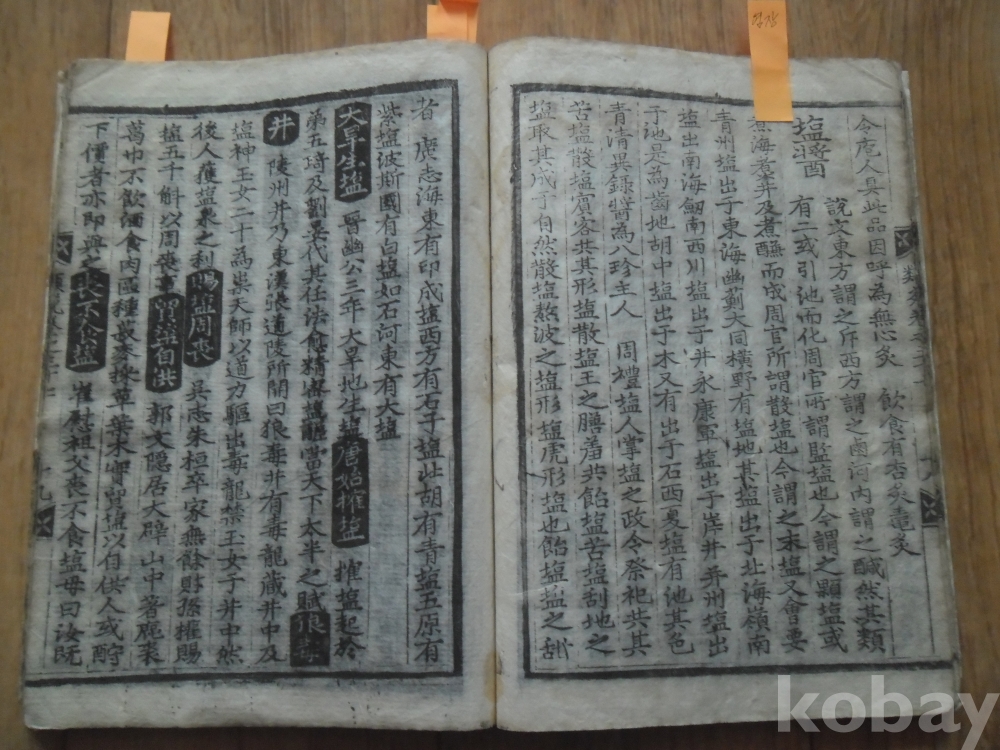 今庵人具此品因呼為無心炙 飲食有杏炙鼋炙
塩醬 說文東方謂之斥西方謂之鹵河內謂之鹹然其類
有二或引池而化周官所謂盬塩也今謂之顆塩或
煮海煮井及煮鹻而成周官所謂散塩也今謂之末塩又會要
青州塩出于東海幽薊大同橫野有塩地其塩出于北海嶺南
塩出南海劒南西川塩出于井永康軍塩出于岸井并州塩出
于池是為地胡中塩出于木又有出于石西夏塩有池其色
青清異錄醬為八珍主人 周禮塩人掌塩之政令祭祀共其
苦塩散塩賓客共其形塩散塩王之膳羞共飴塩苦塩刮地之
塩取其成于自然散塩熬波之塩形塩虎形塩也飴塩盐之甜
者 廣志海東有印成塩西方有石子塩北胡有青塩五原有
紫塩波斯國有白塩如石河東有大塩
大旱生塩 晉幽公三年大旱地生塩 唐始榷塩 榷塩起於
第五琦及劉晏代其任法愈精密塩當天下太半之賦 狼毒
井 陵州井乃東漢張道陵所開曰狼毒井有毒龍藏井中及
塩神玉女二十為祟天師以道力驅出毒龍禁玉女于井中然
後人獲塩泉之利 賜塩周喪 吳志朱桓卒家無餘財孫權賜
塩五千斛以周喪事 貿塩自供 郭文隱居大辟山中著鹿裘
葛巾不飲酒食肉區種菽麥採草葉木實貿塩以自供人或酧
下價者亦即與之 喪不食塩 崔慰祖父喪不食塩母曰汝既
kobay